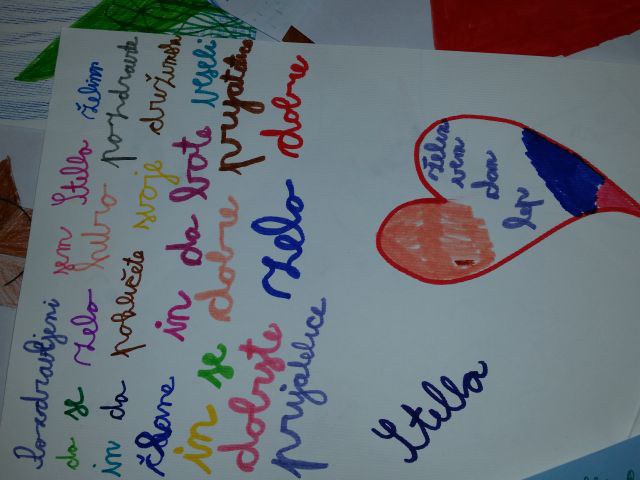 Pozdravljeni sem Stella želim
da se zelo hitro pozdravite
in da pokličete svoje družinske
člane in da bote veseli
in se dobre
dobiste zelo dobre
prijatelice
želim
vem
dan
lep
Stella